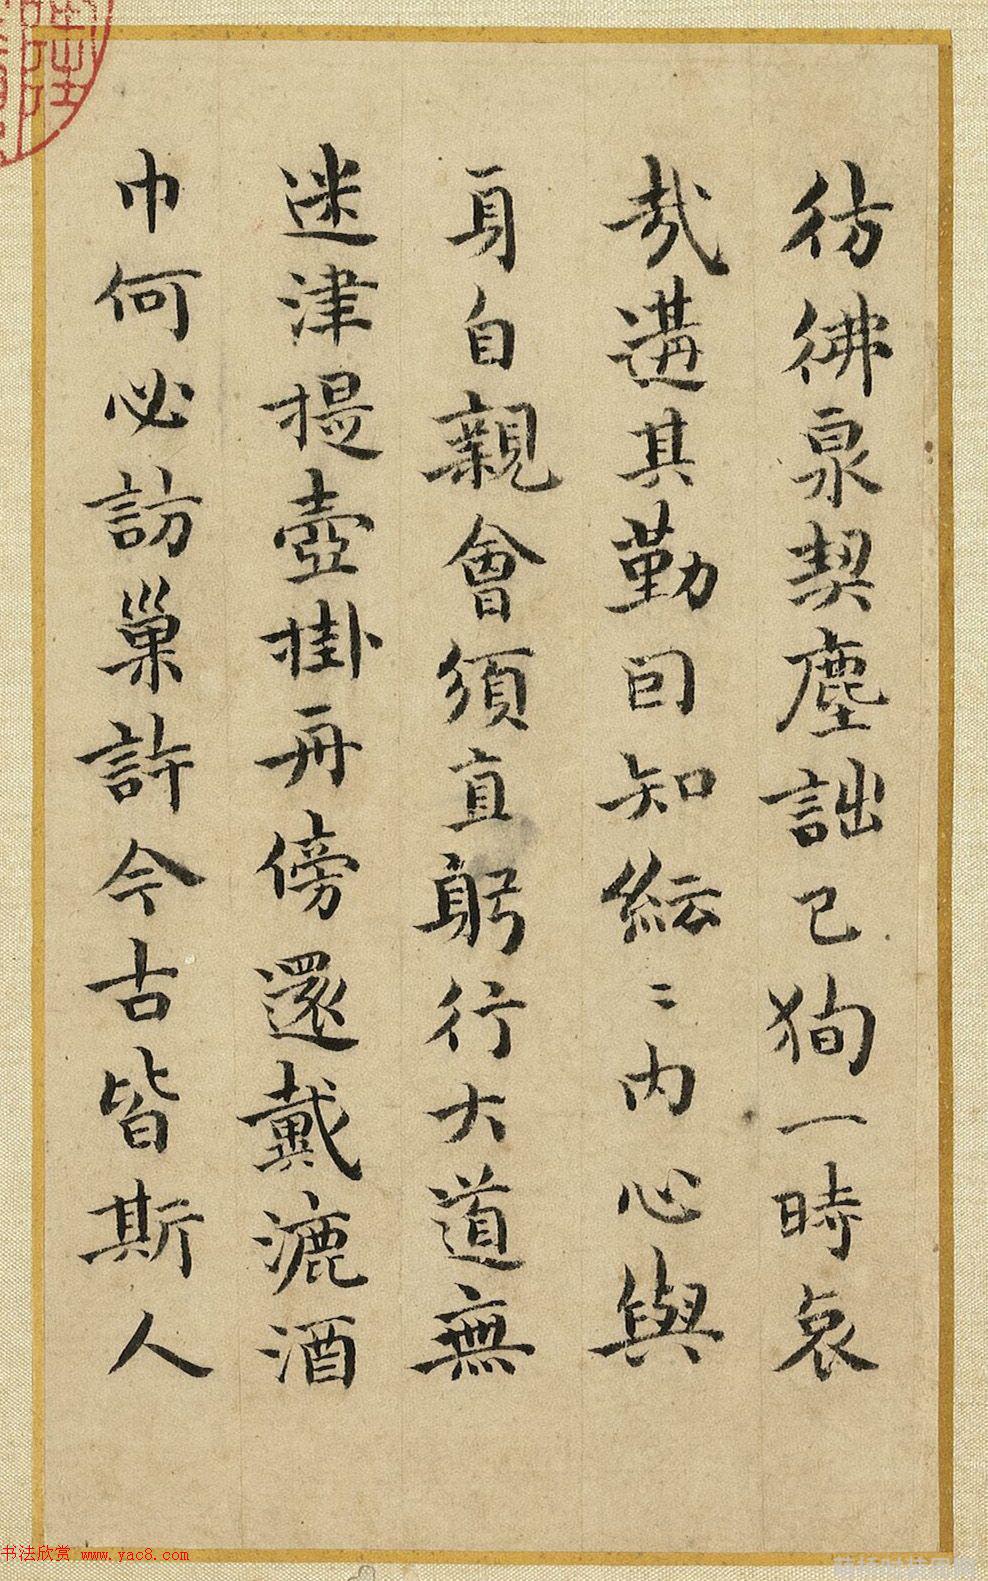 彷彿泉契塵詘己狥一時哀
哉遘其勤囙知紜〻内心與
身自親會須直躬行大道無
迷津提壺掛舟傍還戴漉酒
巾何必訪巢許今古皆斯人
书法欣赏 www.yac8.com